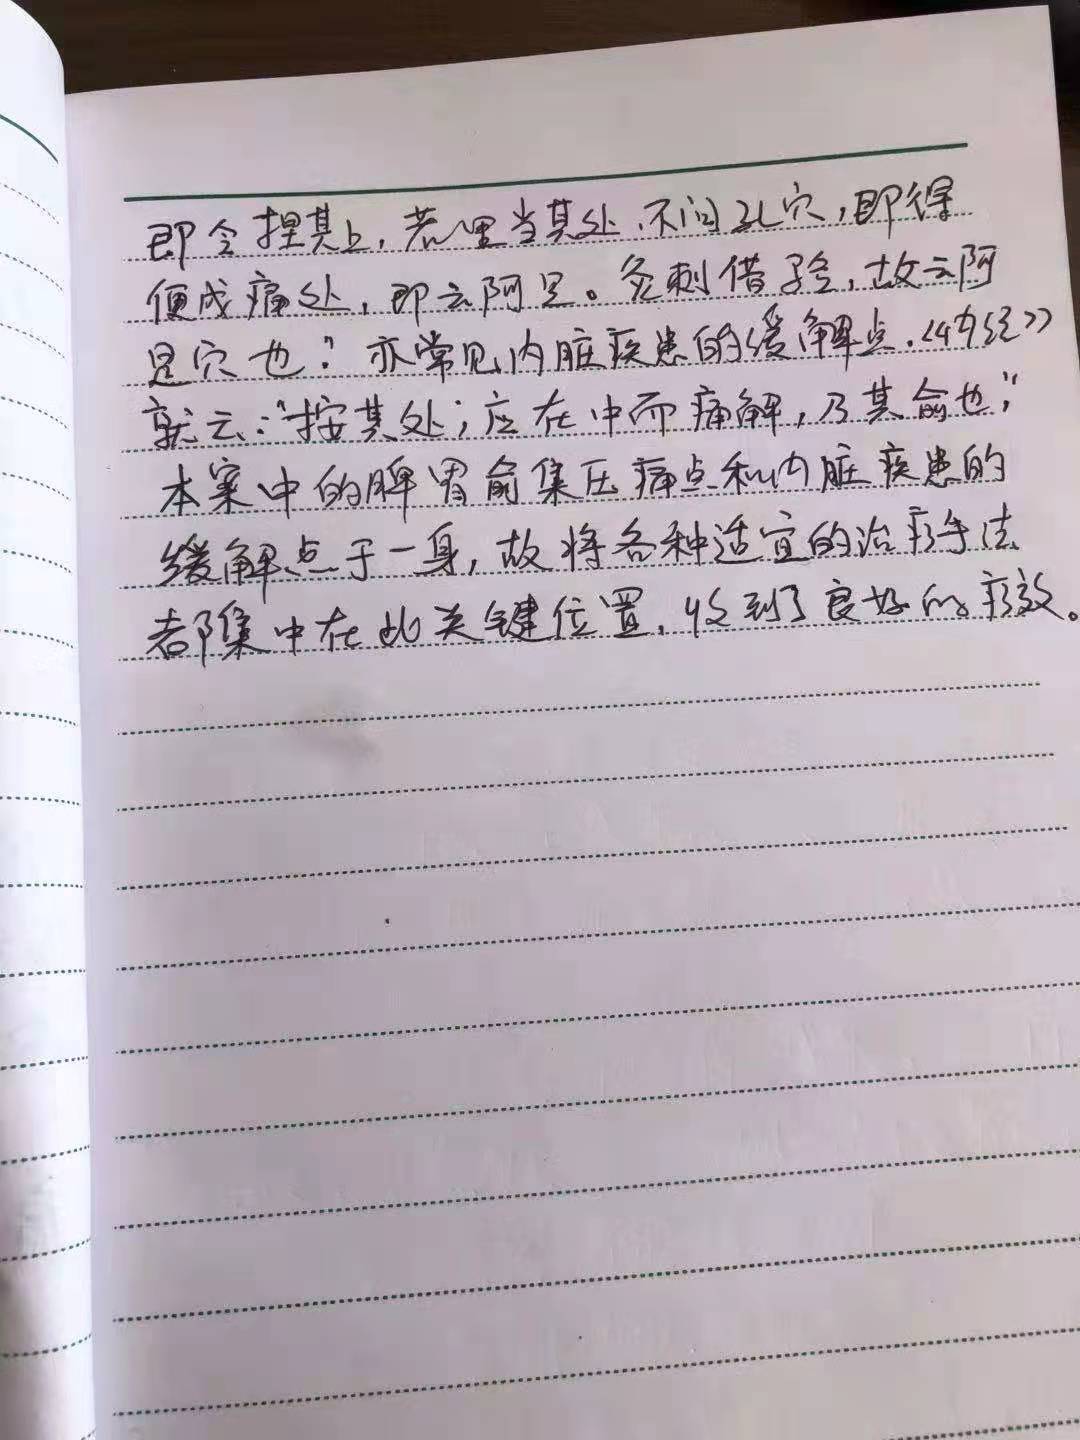 即令捏其上,若里当其处,不问孔穴,即得
便成痛处,即云阿是。灸刺借验,故云阿
是穴也”亦常见内脏疾患的缓解点.《内经》
就云:“按其处;应在中而痛解,乃其俞也”
本案中的脾胃俞集压痛点和内脏疾患的
缓解点于一身,故将各种适宜的治疗手法
都集中在此关键位置,收到了良好的疗效。